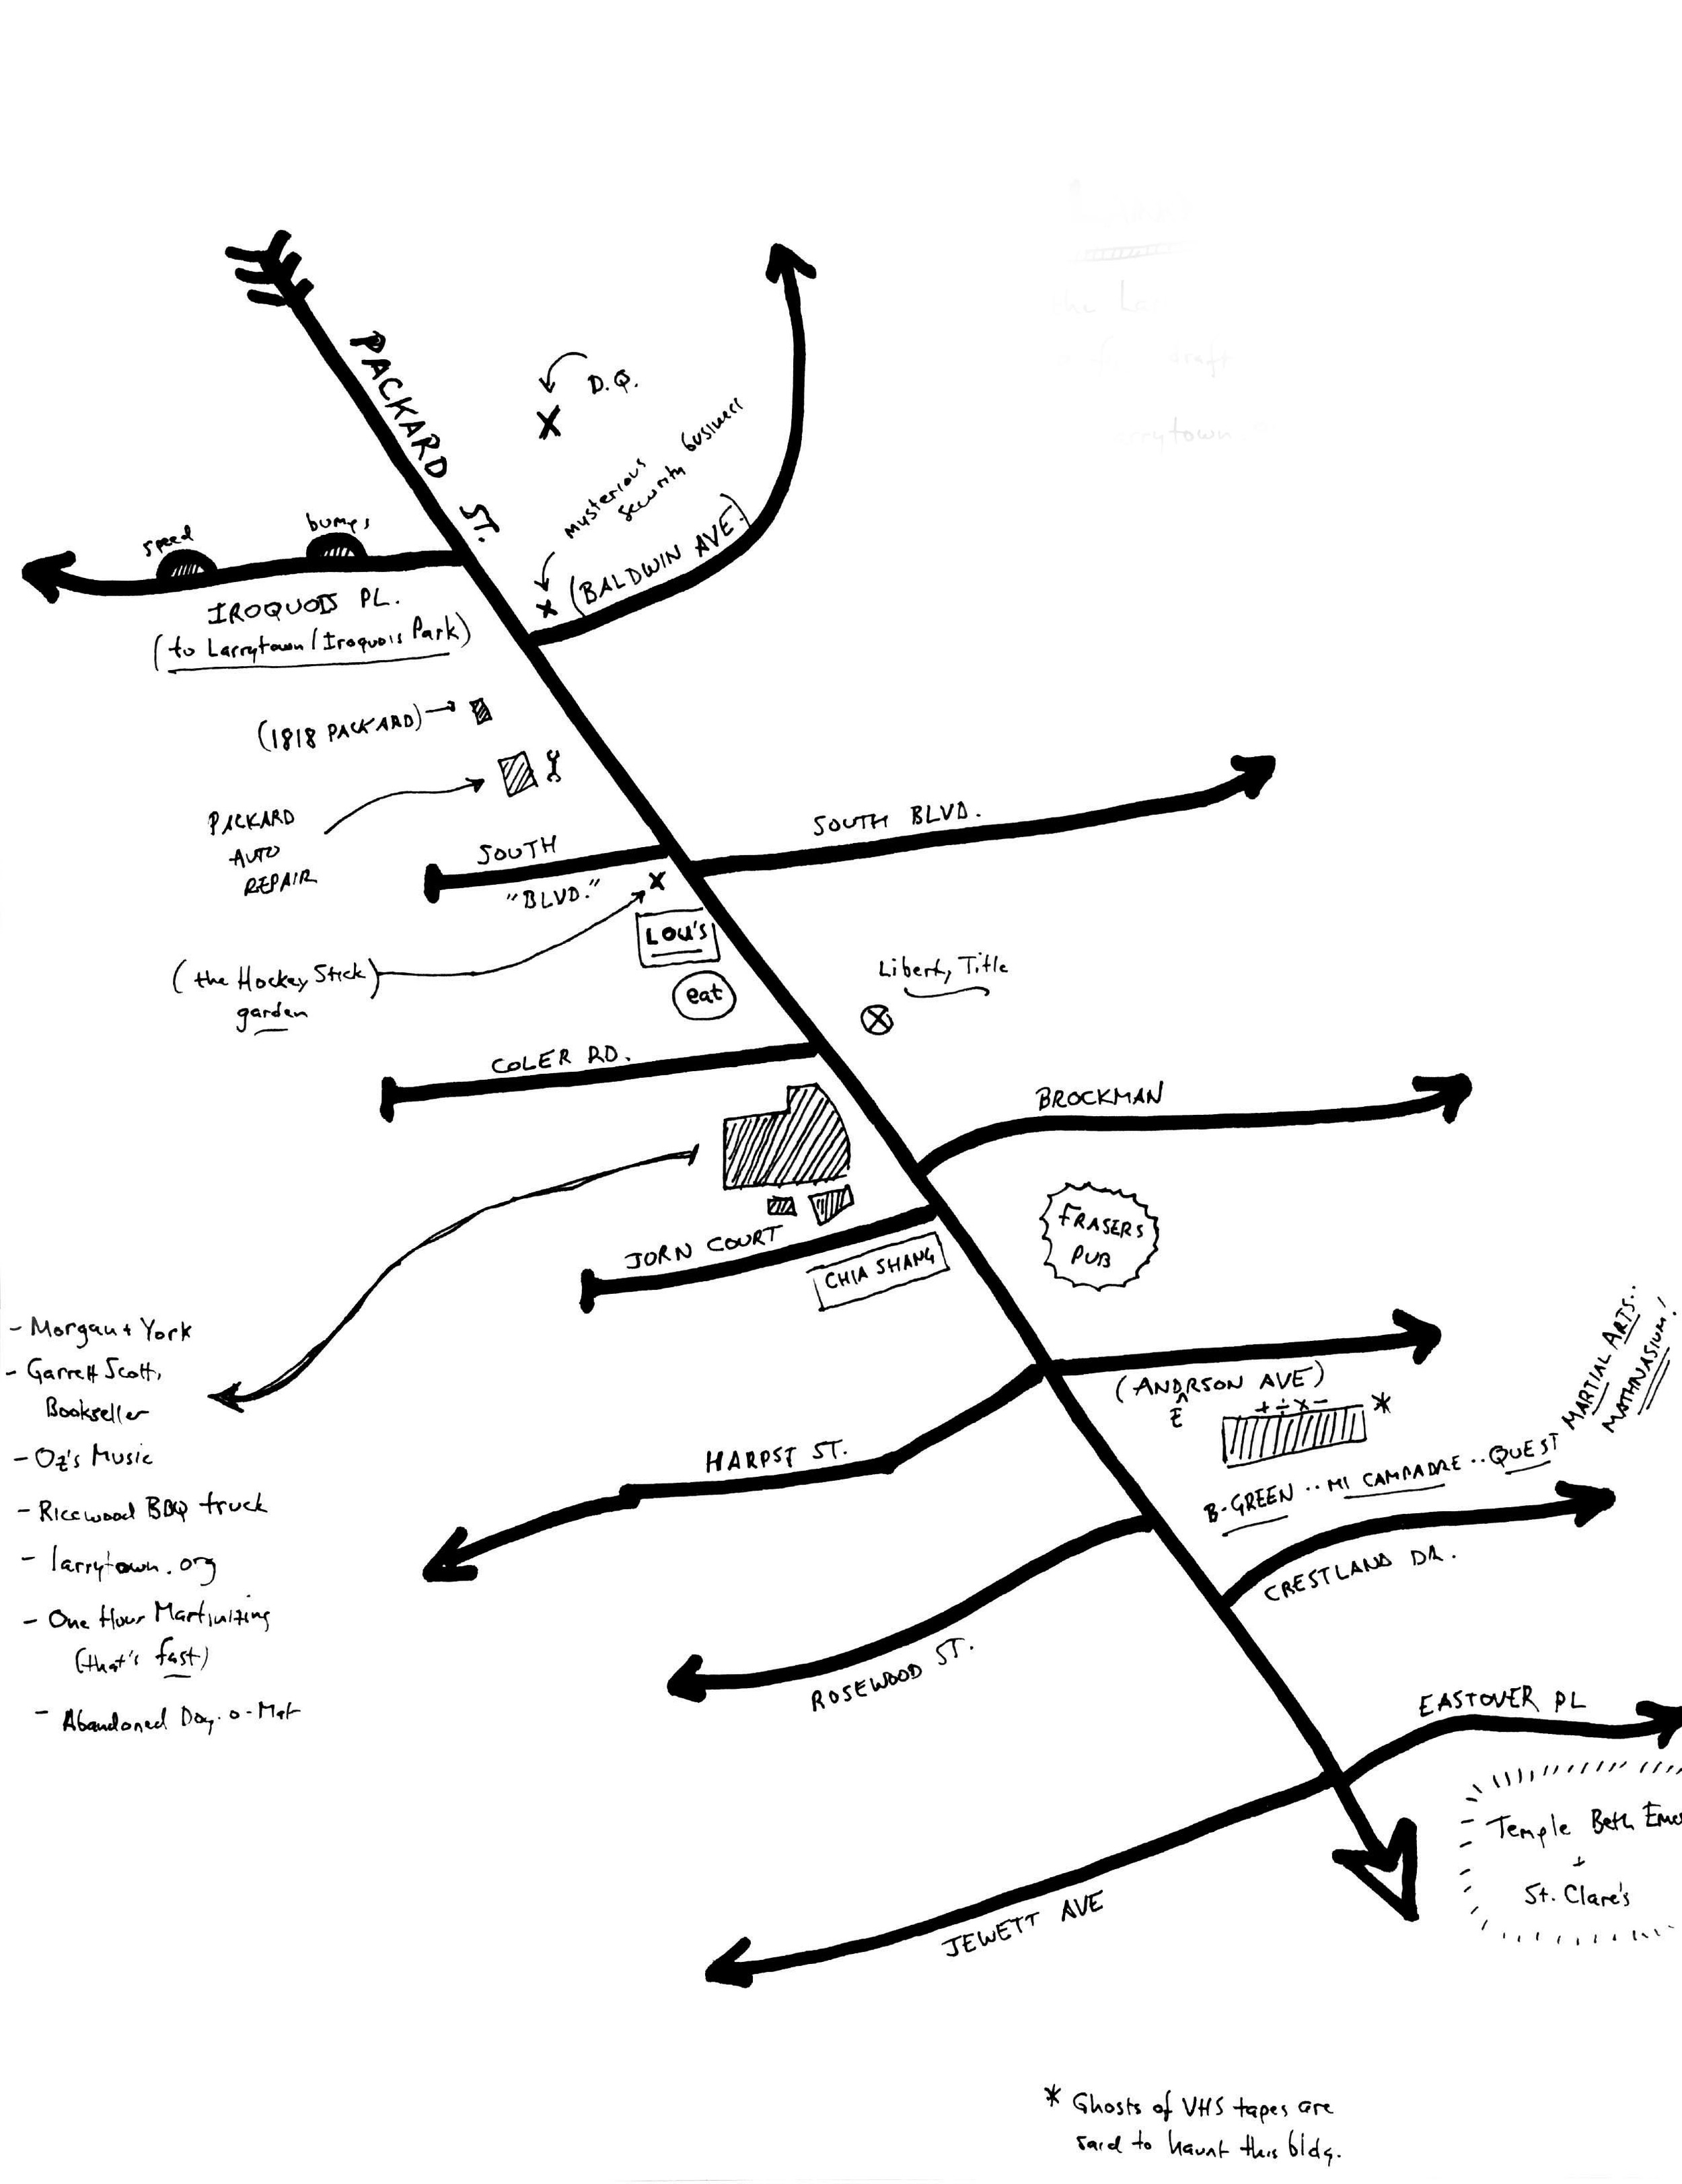 PACKARD ST.
D.Q.
mysterious
security business
(BALDWIN AVE.)
speed bumps
IROQUOIS PL.
(to Larrytown/Iroquois Park)
(1818 PACKARD)
PACKARD
AUTO
REPAIR
SOUTH
"BLVD."
SOUTH BLVD.
LOU'S
(the Hockey Stick)
garden
eat
Liberty Title
COLER RD.
BROCKMAN
FRASERS
PUB
JORN COURT
CHIA SHANG
- Morgan + York
- Garrett Scott,
Bookseller
- Oz's Music
- Ricewood BBQ truck
- larrytown.org
- One Hour Martinizing
(that's fast)
- Abandoned Day-o-Mat
(ANDRSON AVE)
^
E
+ ÷ x -
*
HARPST ST.
B-GREEN .. MI CAMPADRE .. QUEST
MARTIAL ARTS..
MATHNASIUM!
CRESTLAND DR.
ROSEWOOD ST.
EASTOVER PL
Temple Beth Eme
+
St. Clare's
JEWETT AVE
* Ghosts of VHS tapes are
said to haunt this bldg.